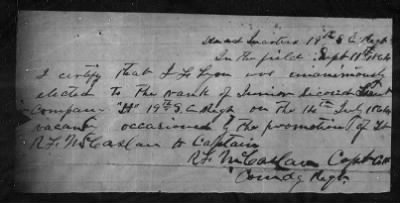 Head Quarters 19th S C Regt
In the field Sept 11th 1864
I certify that J L Lyon was unanimously
elected to the rank of Junior Second Lieut
Company "H" 19th S C Regt on the 14th July 1864
vacant occasioned by the promotion of Lt
R. F. McCaslan to Captain
R F McCaslan Capt
Comdg Regt.